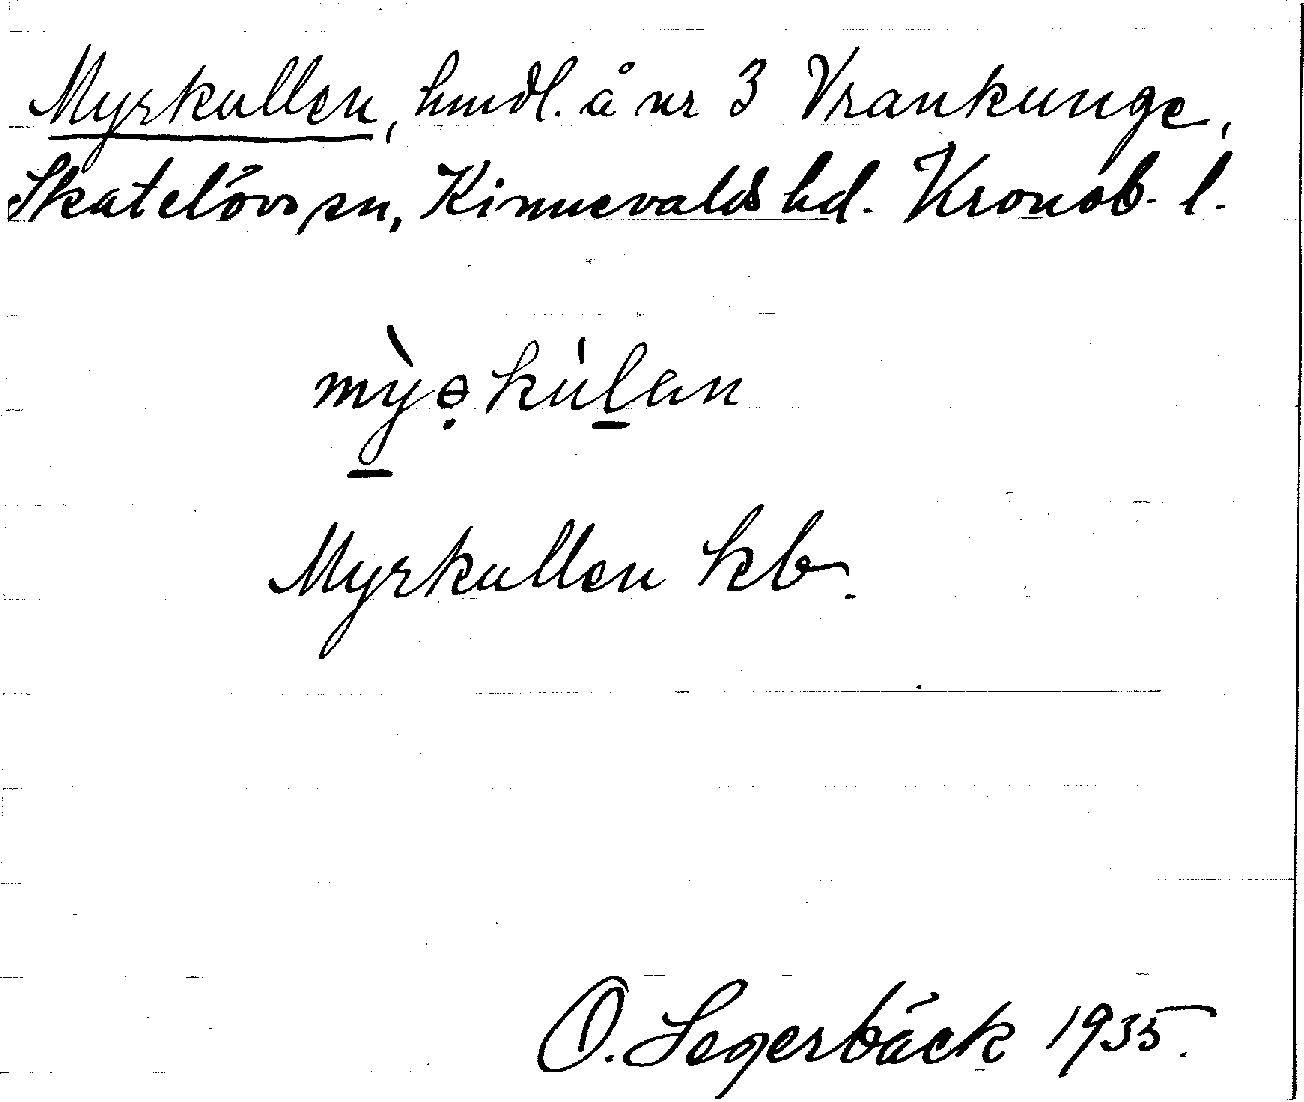 Myrkullen, hmdl. å nr 3 Vrankunge,
Skatelövs sn, Kinnevalds hd. Kronob. l.
mỳə̣kúlen
Myrkullen kb.
O. Segerbäck 1935.